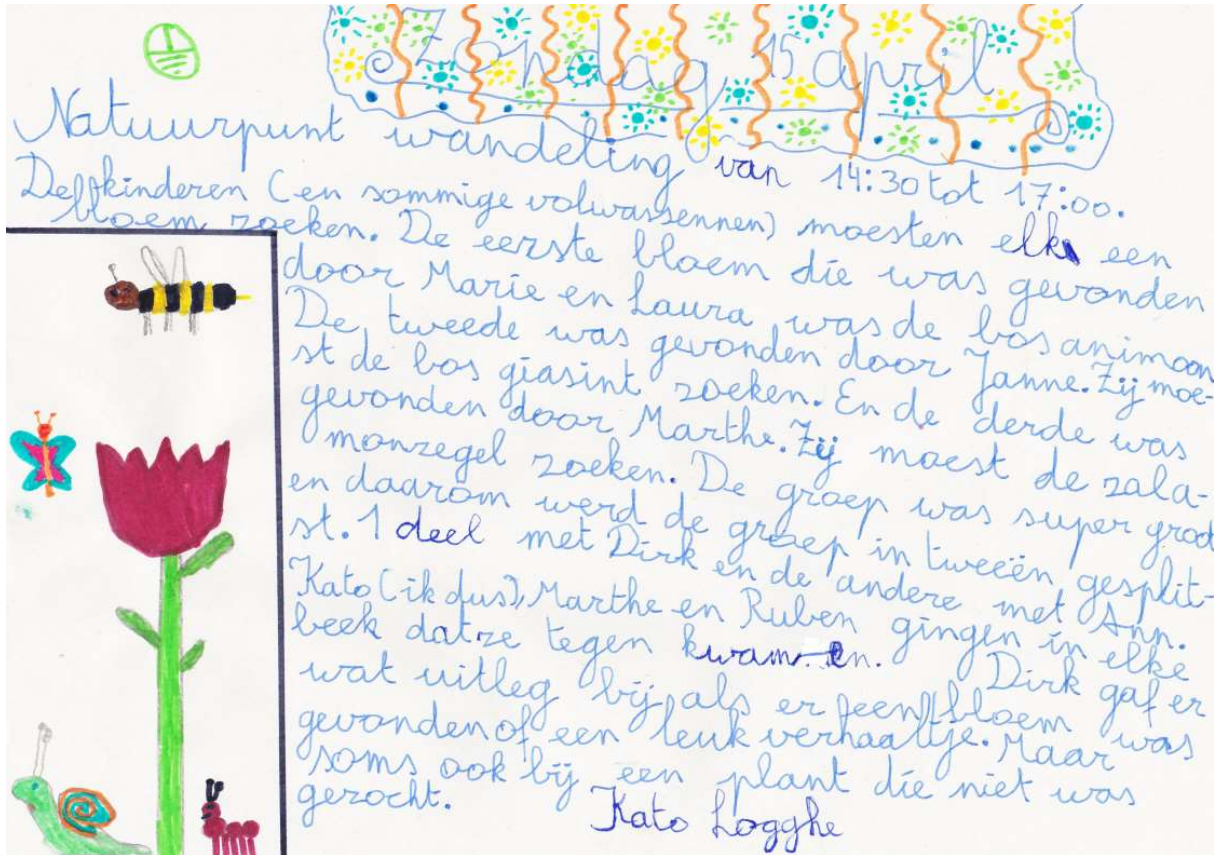 Zondag 15 april
Natuurpunt wandeling van 14:30 tot 17:00.
De kinderen (en sommige volwassennen) moesten elk een
bloem zoeken. De eerste bloem die was gevonden
door Marie en Laura was de bosanimoon
De tweede was gevonden door Janne. Zij moe-
st de bos giasint zoeken. En de derde was
gevonden door Marthe. Zij moest de zala-
monzegel zoeken. De groep was super groot
en daarom werd de groep in tweeën gesplit-
st. 1 deel met Dirk en de andere met Ann.
Kato (ik dus), Marthe en Ruben gingen in elke
beek dat ze tegen kwamen. Dirk gaf er
wat uitleg bij als er een bloem was
gevonden of een leuk verhaaltje. Maar
soms ook bij een plant die niet was
gezocht.
Kato Logghe